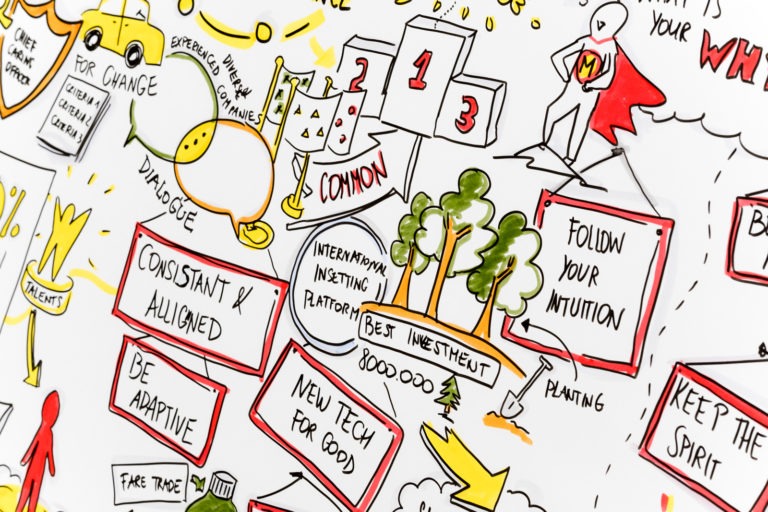 CHIEF
CARING
OFFICER
FOR CHANGE
CRITERIA 1
CRITERIA 2
CRITERIA 3
EXPERIENCED DIVERSE
COMPANIES
DIALOGUE
2
1
3
COMMON
M
WHAT IS
YOUR WHY
%
TALENTS
CONSISTANT &
ALLIGNED
BE
ADAPTIVE
INTERNATIONAL
INSETTING
PLATFORM
BEST INVESTMENT
8000.000
PLANTING
FOLLOW
YOUR
INTUITION
NEW TECH
FOR GOOD
FARE TRADE
KEEP THE
SPIRIT